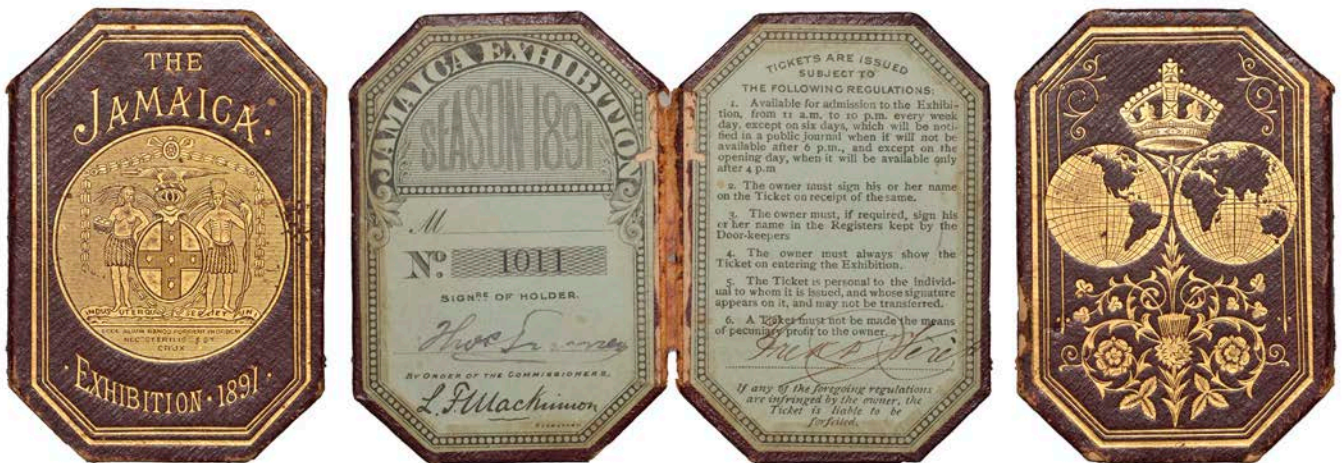 THE
JAMAICA.
INDUS UTERQUE SERVIET UNI
CRUX
· EXHIBITION · 1891 ·
JAMAICA EXHIBITION
SEASON 1891
M
No. 1011
SIGNRE OF HOLDER.
BY ORDER OF THE COMMISSIONERS,
L. F. Mackinnon
SECRETARY
TICKETS ARE ISSUED
SUBJECT TO
THE FOLLOWING REGULATIONS:
1. Available for admission to the Exhibi-
tion, from 11 a.m. to 10 p.m. every week
day, except on six days, which will be noti-
fied in a public journal when it will not be
available after 6 p.m., and except on the
opening day, when it will be available only
after 4 p.m
2. The owner must sign his or her name
on the Ticket on receipt of the same.
3. The owner must, if required, sign his
or her name in the Registers kept by the
Door-keepers
4. The owner must always show the
Ticket on entering the Exhibition.
5. The Ticket is personal to the individ-
ual to whom it is issued, and whose signature
appears on it, and may not be transferred.
6. A Ticket must not be made the means
of pecuniary profit to the owner.
If any of the foregoing regulations
are infringed by the owner, the
Ticket is liable to be
forfeited.